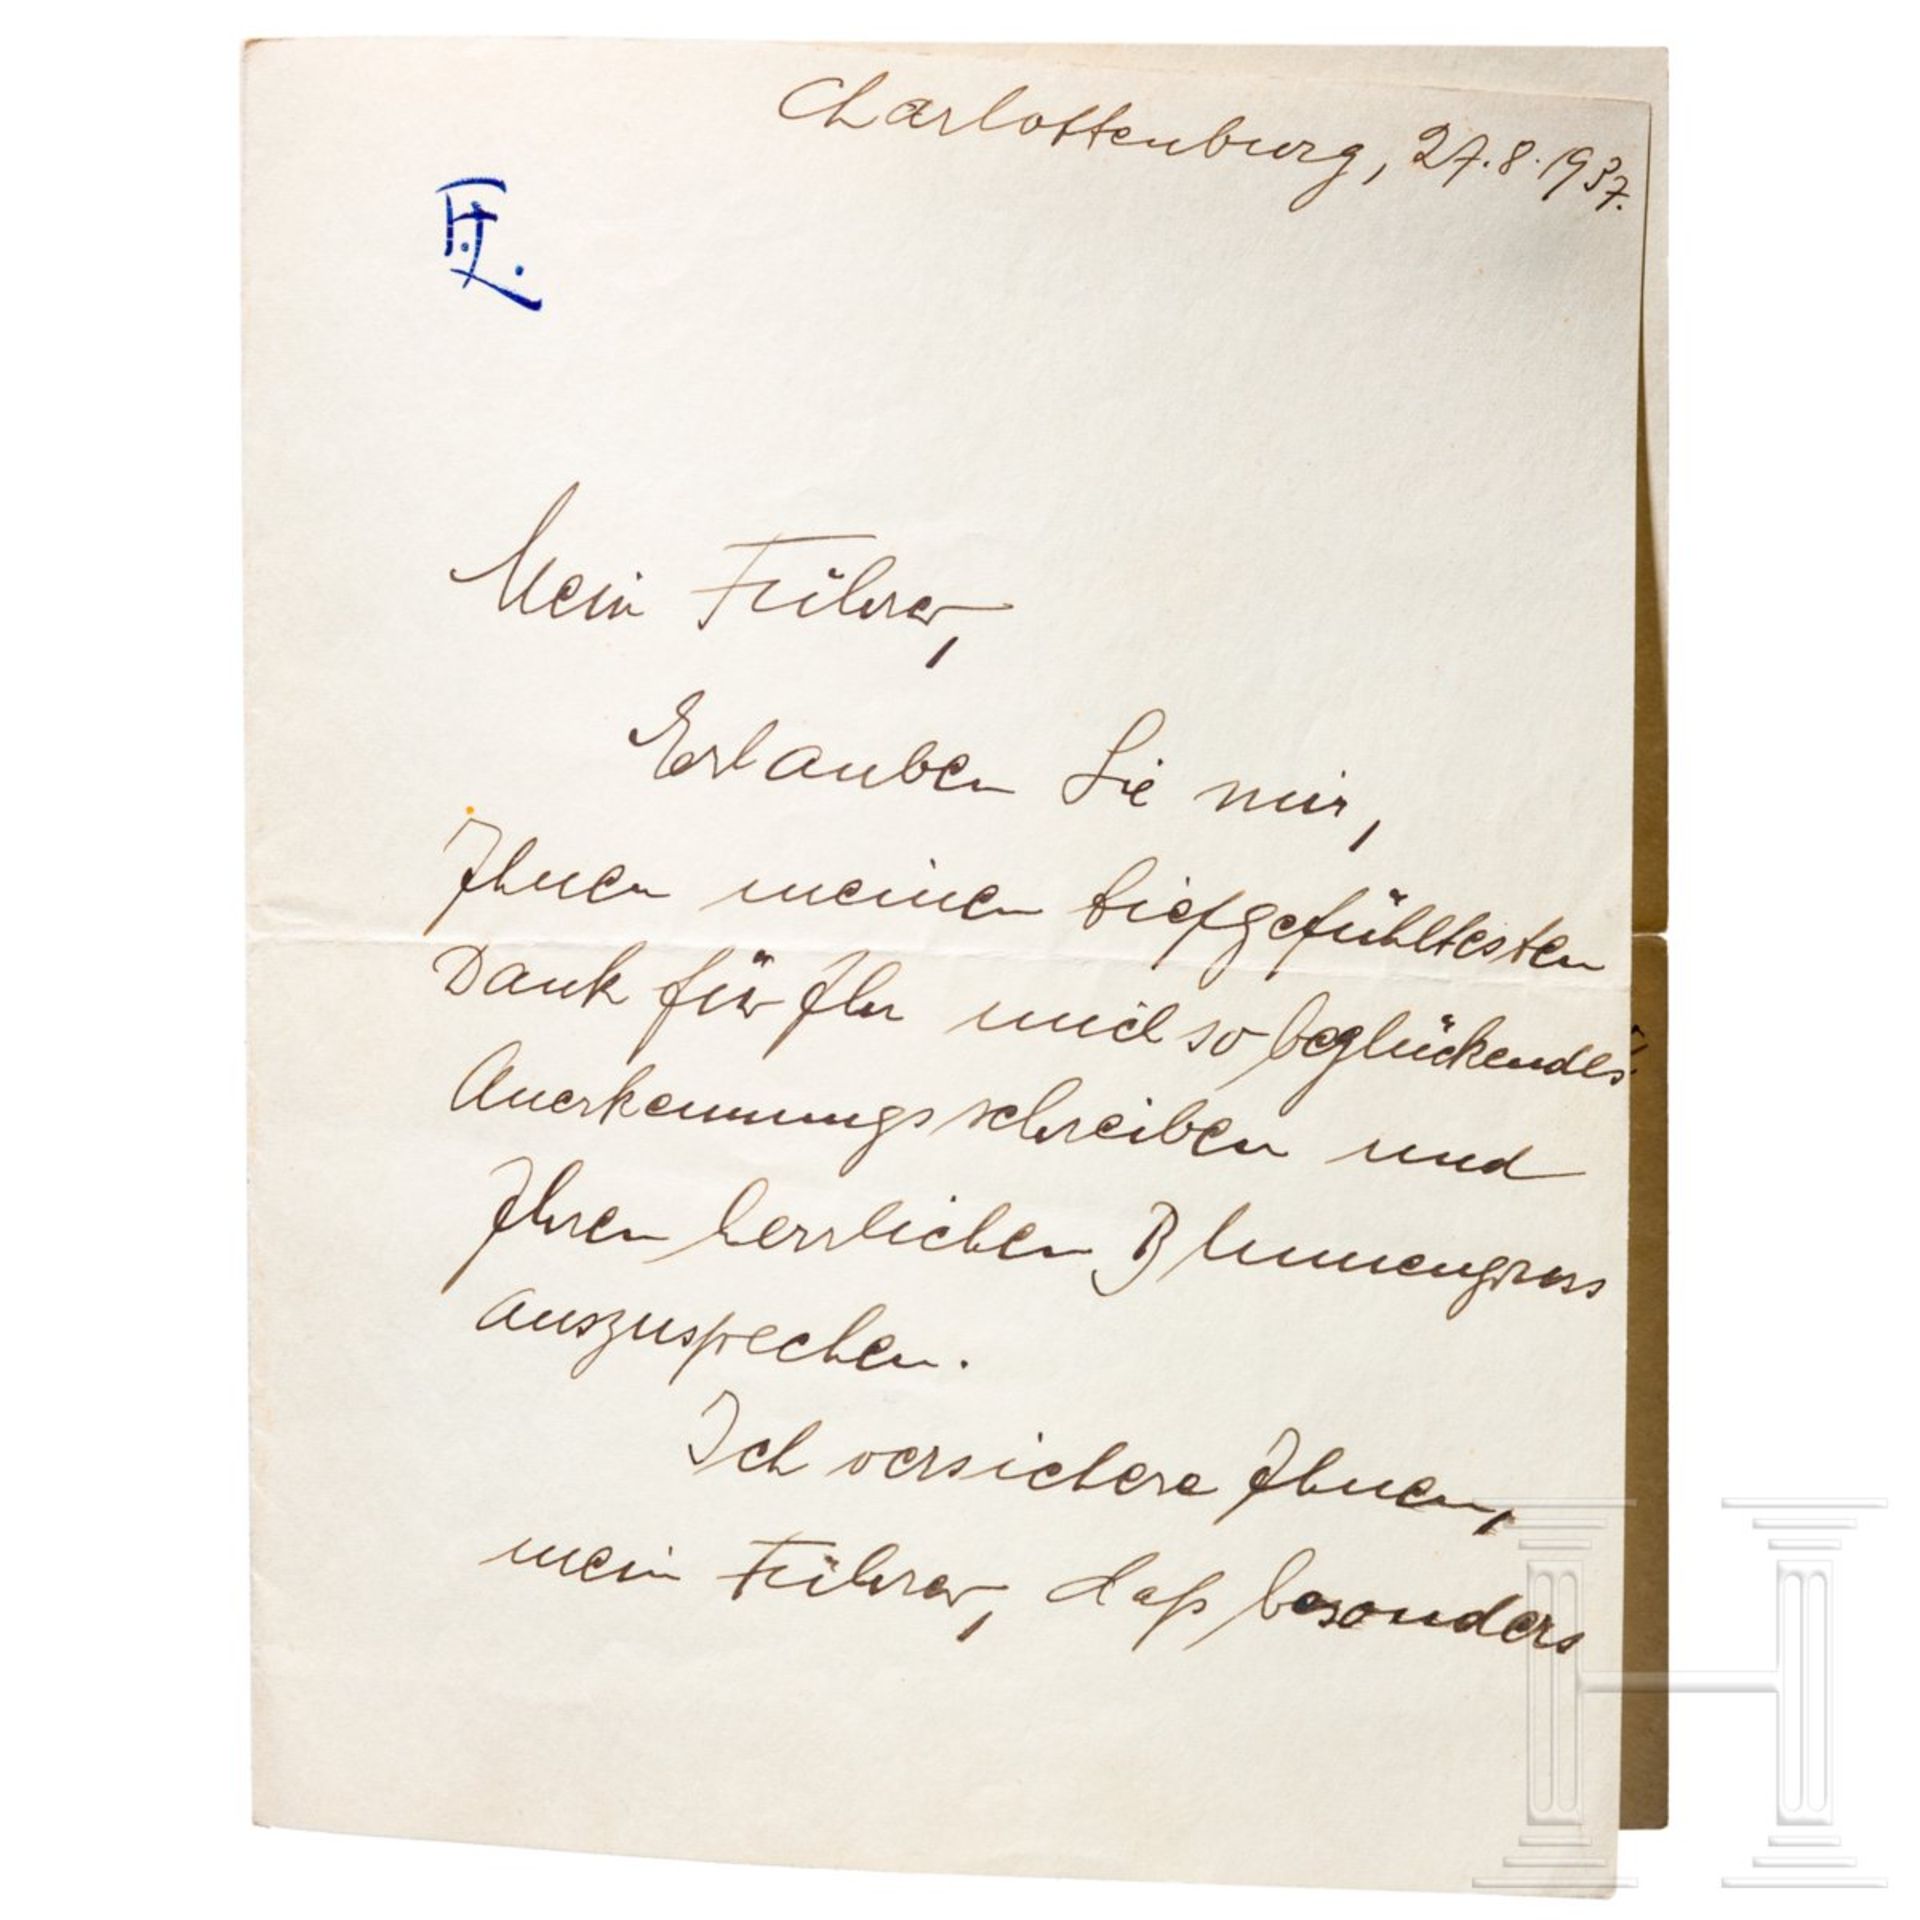 Charlottenburg, 27.8.1937.
Mein Führer,
Erlauben Sie mir,
Ihnen meinen tiefgefühltesten
Dank für Ihr mich so beglückendes
Anerkennungsschreiben und
Ihren herrlichen Blumengruss
auszusprechen.
Ich versichere Ihnen,
mein Führer, daß besonders